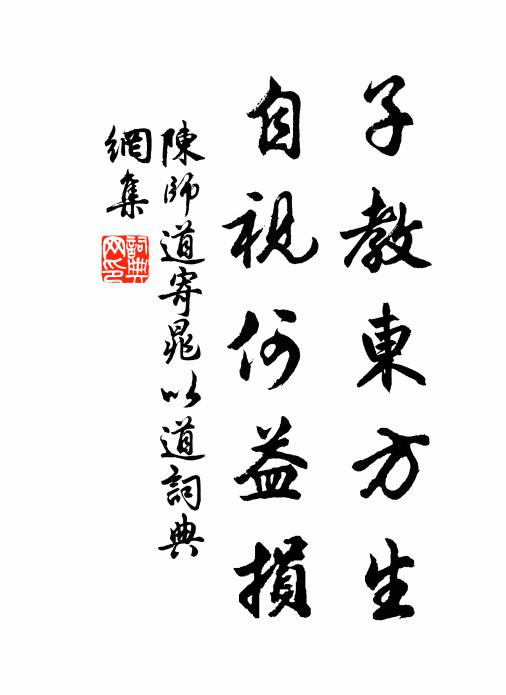 子教東方生
自視何益損
陳師道寄晁以道詞典
網集
詞典
网印